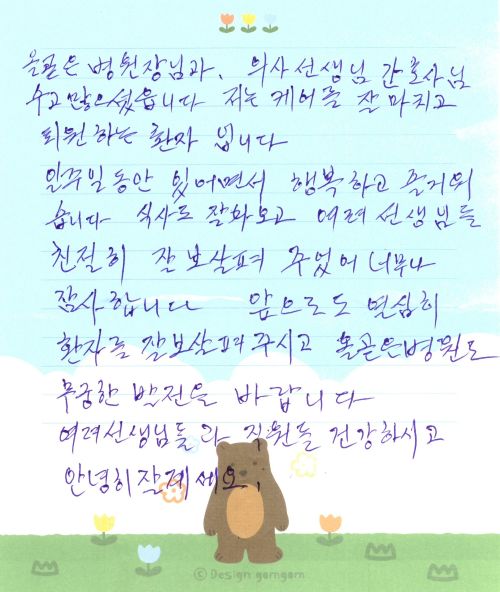 올곧은 병원장님과, 의사선생님 간호사님
수고많으셨읍니다 저는 케어를 잘 마치고
퇴원하는 환자 입니다
일주일동안 있어면서 행복하고 즐거워
읍니다 식사도 잘하고 여려선생님들
친절히 잘보살펴 주었어 너무나
감사합니다 앞으로도 열심히
환자를 잘보살펴주시고 올곧은병원도
무궁한 발전을 바랍니다
여려선생님들과 직원들 건강하시고
안녕히잘계세요
© Design gomgom